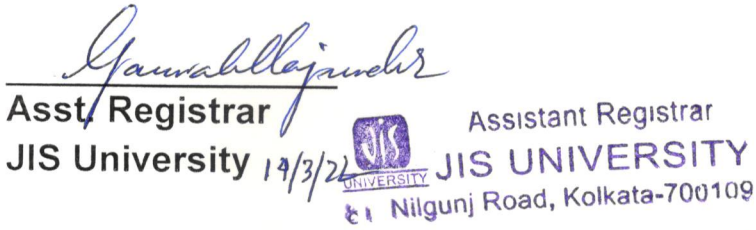 Asst. Registrar
JIS University
JIS
UNIVERSITY
Assistant Registrar
JIS UNIVERSITY
81 Nilgunj Road, Kolkata-700109